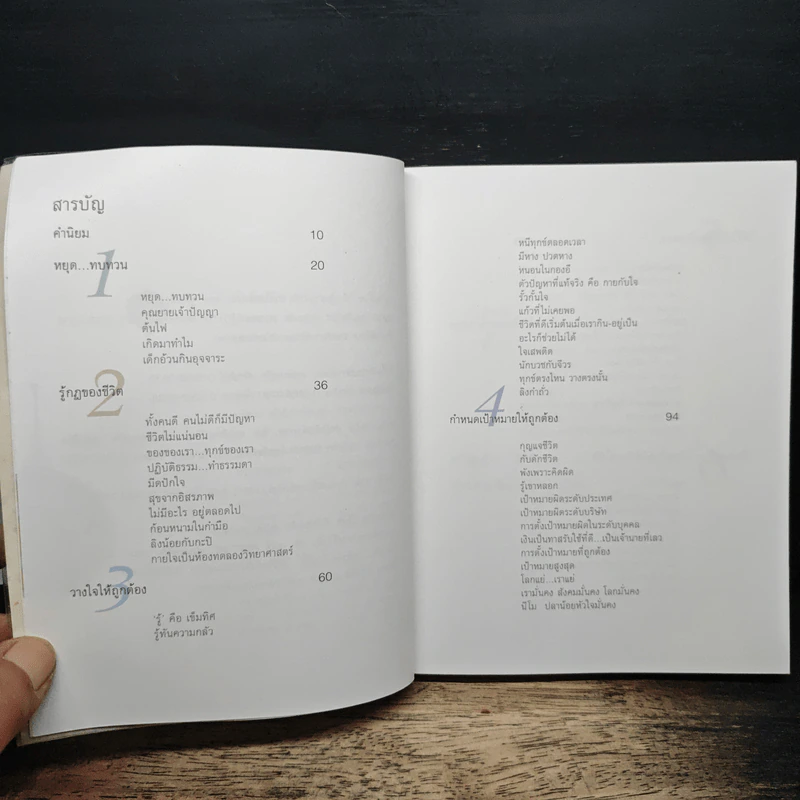 สารบัญ
คำนิยม 10
1
หยุด...ทบทวน 20
หยุด...ทบทวน
คุณยายเจ้าปัญญา
ต้นไฟ
เกิดมาทำไม
เด็กอ้วนกินอุจจาระ
2
รู้กฎของชีวิต 36
ทั้งคนดี คนไม่ดีก็มีปัญหา
ชีวิตไม่แน่นอน
ของของเรา...ทุกข์ของเรา
ปฏิบัติธรรม...ทำธรรมดา
มีดปักใจ
สุขจากอิสรภาพ
ไม่มีอะไร อยู่ตลอดไป
ก้อนหนามในกำมือ
ลิงน้อยกับกะปิ
กายใจเป็นห้องทดลองวิทยาศาสตร์
3
วางใจให้ถูกต้อง 60
'รู้' คือ เข็มทิศ
รู้ทันความกลัว
หนีทุกข์ตลอดเวลา
มีหาง ปวดหาง
หนอนในกองขี้
ตัวปัญหาที่แท้จริง คือ กายกับใจ
รั้วกั้นใจ
แก้วที่ไม่เคยพอ
ชีวิตที่ดีเริ่มต้นเมื่อเรากิน-อยู่เป็น
อะไรก็ช่วยไม่ได้
ใจเสพติด
นักบวชกับจีวร
ทุกข์ตรงไหน วางตรงนั้น
ลิงกำถั่ว
4
กำหนดเป้าหมายให้ถูกต้อง 94
กุญแจชีวิต
กับดักชีวิต
พังเพราะคิดผิด
รู้เขาหลอก
เป้าหมายผิดระดับประเทศ
เป้าหมายผิดระดับบริษัท
การตั้งเป้าหมายผิดในระดับบุคคล
เงินเป็นทาสรับใช้ที่ดี...เป็นเจ้านายที่เลว
การตั้งเป้าหมายที่ถูกต้อง
เป้าหมายสูงสุด
โลกแย่...เราแย่
เรามั่นคง สังคมมั่นคง โลกมั่นคง
นีโม ปลาน้อยหัวใจมั่นคง